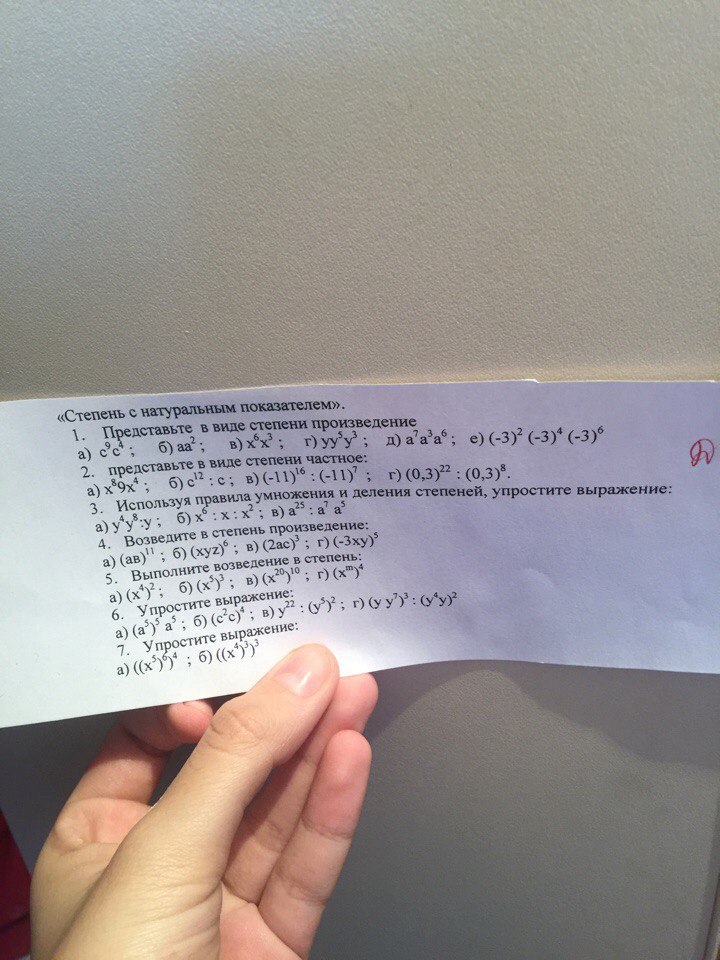 «Степень с натуральным показателем».
1. Представьте в виде степени произведение
а) c⁹c⁴ ; б) aa² ; в) x⁶x³ ; г) yy⁵y³ ; д) a⁷a³a⁶ ; е) (-3)² (-3)⁴ (-3)⁶
2. представьте в виде степени частное:
а) x⁸9x⁴ ; б) c¹² : c ; в) (-11)¹⁶ : (-11)⁷ ; г) (0,3)²² : (0,3)⁸.
3. Используя правила умножения и деления степеней, упростите выражение:
а) y⁴y⁸:y ; б) x⁶ : x : x² ; в) a²⁵ : a⁷ a⁵
4. Возведите в степень произведение:
а) (ав)¹¹ ; б) (xyz)⁶ ; в) (2ac)³ ; г) (-3xy)⁵
5. Выполните возведение в степень:
а) (x⁴)² ; б) (x⁵)³ ; в) (x²⁰)¹⁰ ; г) (xᵐ)⁴
6. Упростите выражение:
а) (a⁵)⁵ a⁵ ; б) (c²c)⁴ ; в) y²² : (y⁵)² ; г) (y y⁷)³ : (y⁴y)²
7. Упростите выражение:
а) ((x⁵)⁶)⁴ ; б) ((x⁴)³)³